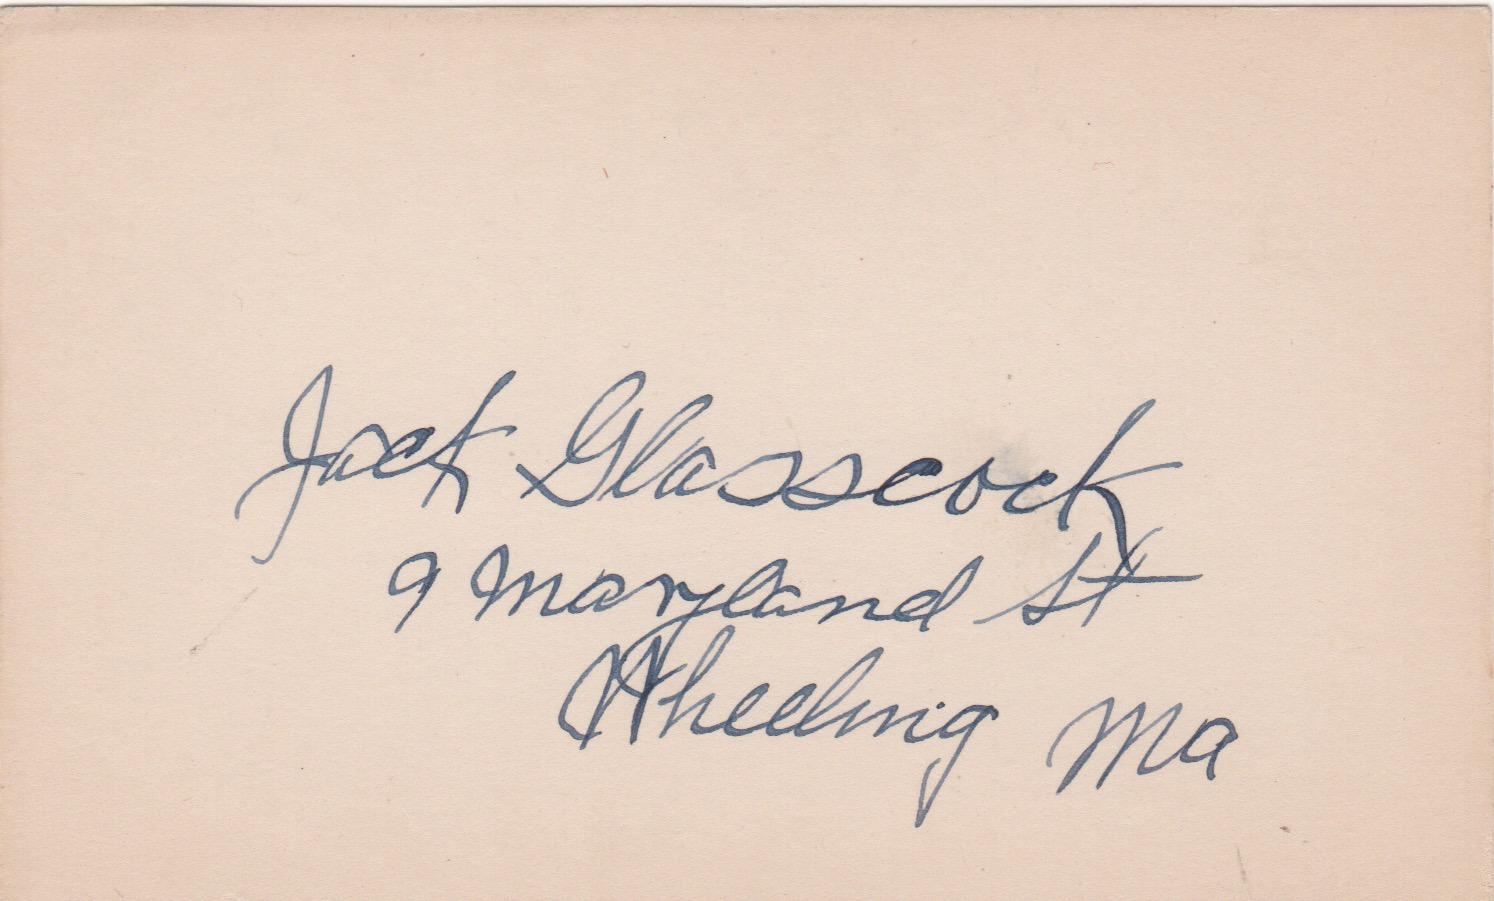 Jack Glasscock
9 Maryland St
Wheeling Ma